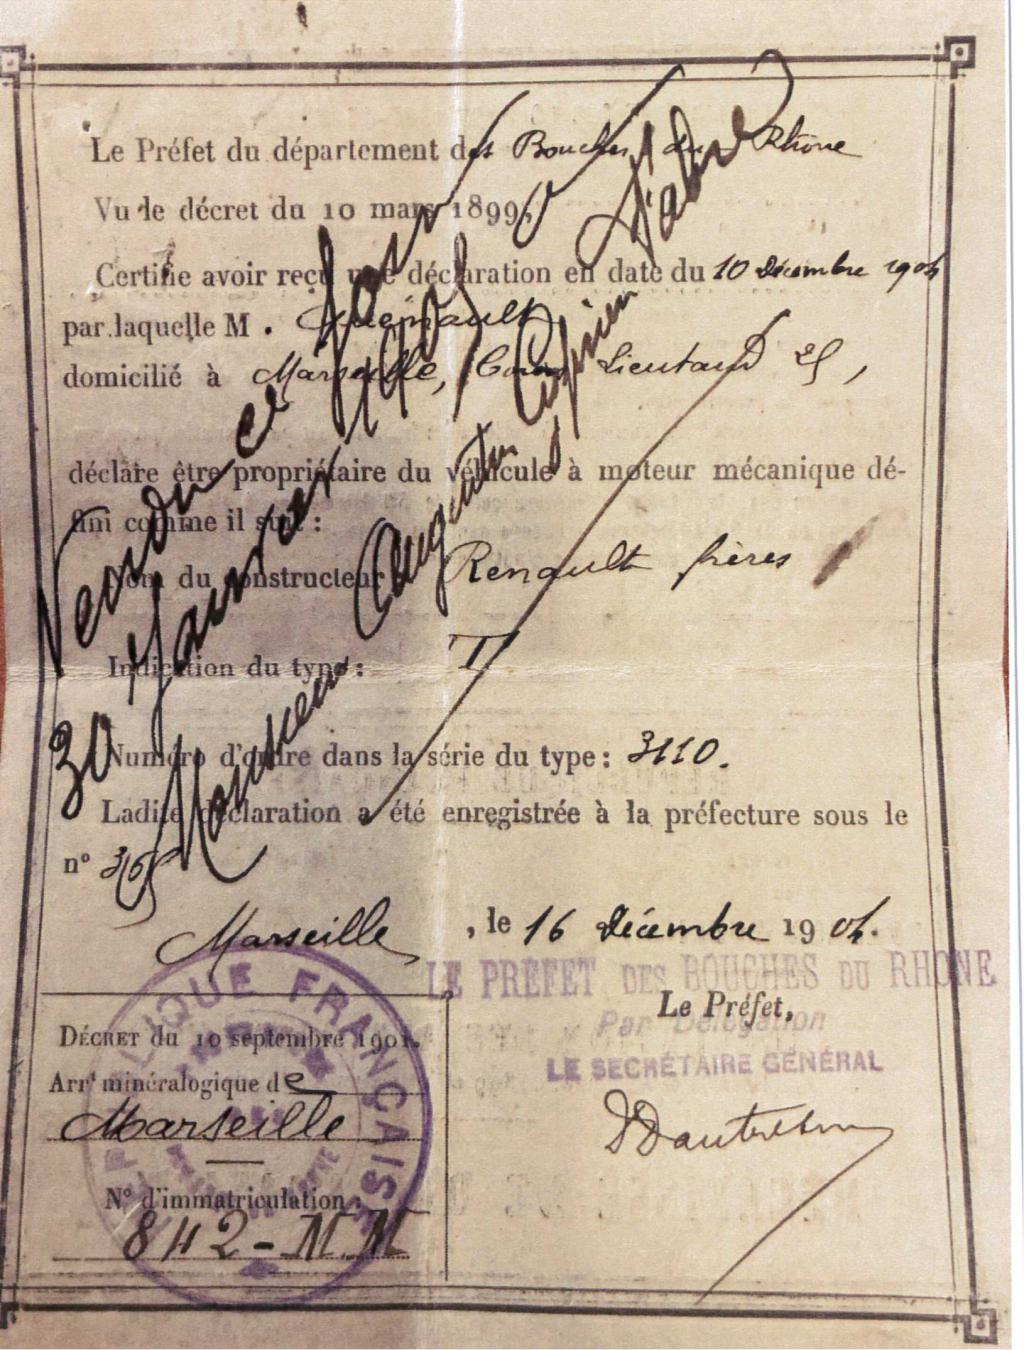 Le Préfet du département des Bouches du Rhône
Vu le décret du 10 mars 1899,
Certifie avoir reçu une déclaration en date du 10 décembre 1904
par laquelle M.
domicilié à Marseille, Cours Lieutaud 25,
déclare être propriétaire du véhicule à moteur mécanique dé-
fini comme il suit :
Nom du constructeur Renault frères
Indication du type : T
Numéro d'ordre dans la série du type : 3110.
Ladite déclaration a été enregistrée à la préfecture sous le
n° 365
Marseille, le 16 décembre 1904.
LE PRÉFET DES BOUCHES DU RHONE
Le Préfet,
Par Délégation
LE SECRÉTAIRE GÉNÉRAL
DÉCRET du 10 septembre 1901.
Arrt minéralogique de
Marseille
N° d'immatriculation :
842 - MM
Vendu ce jour
30 Janvier 1909
Monsieur Augustin Cyprien Fabre
RÉPUBLIQUE FRANÇAISE